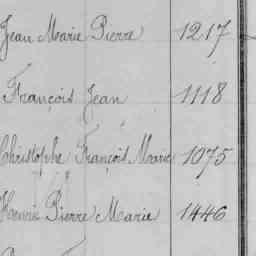 Jean Marie Pierre 1217
François Jean 1118
Christophe François Marie 1075
Henri Pierre Marie 1446